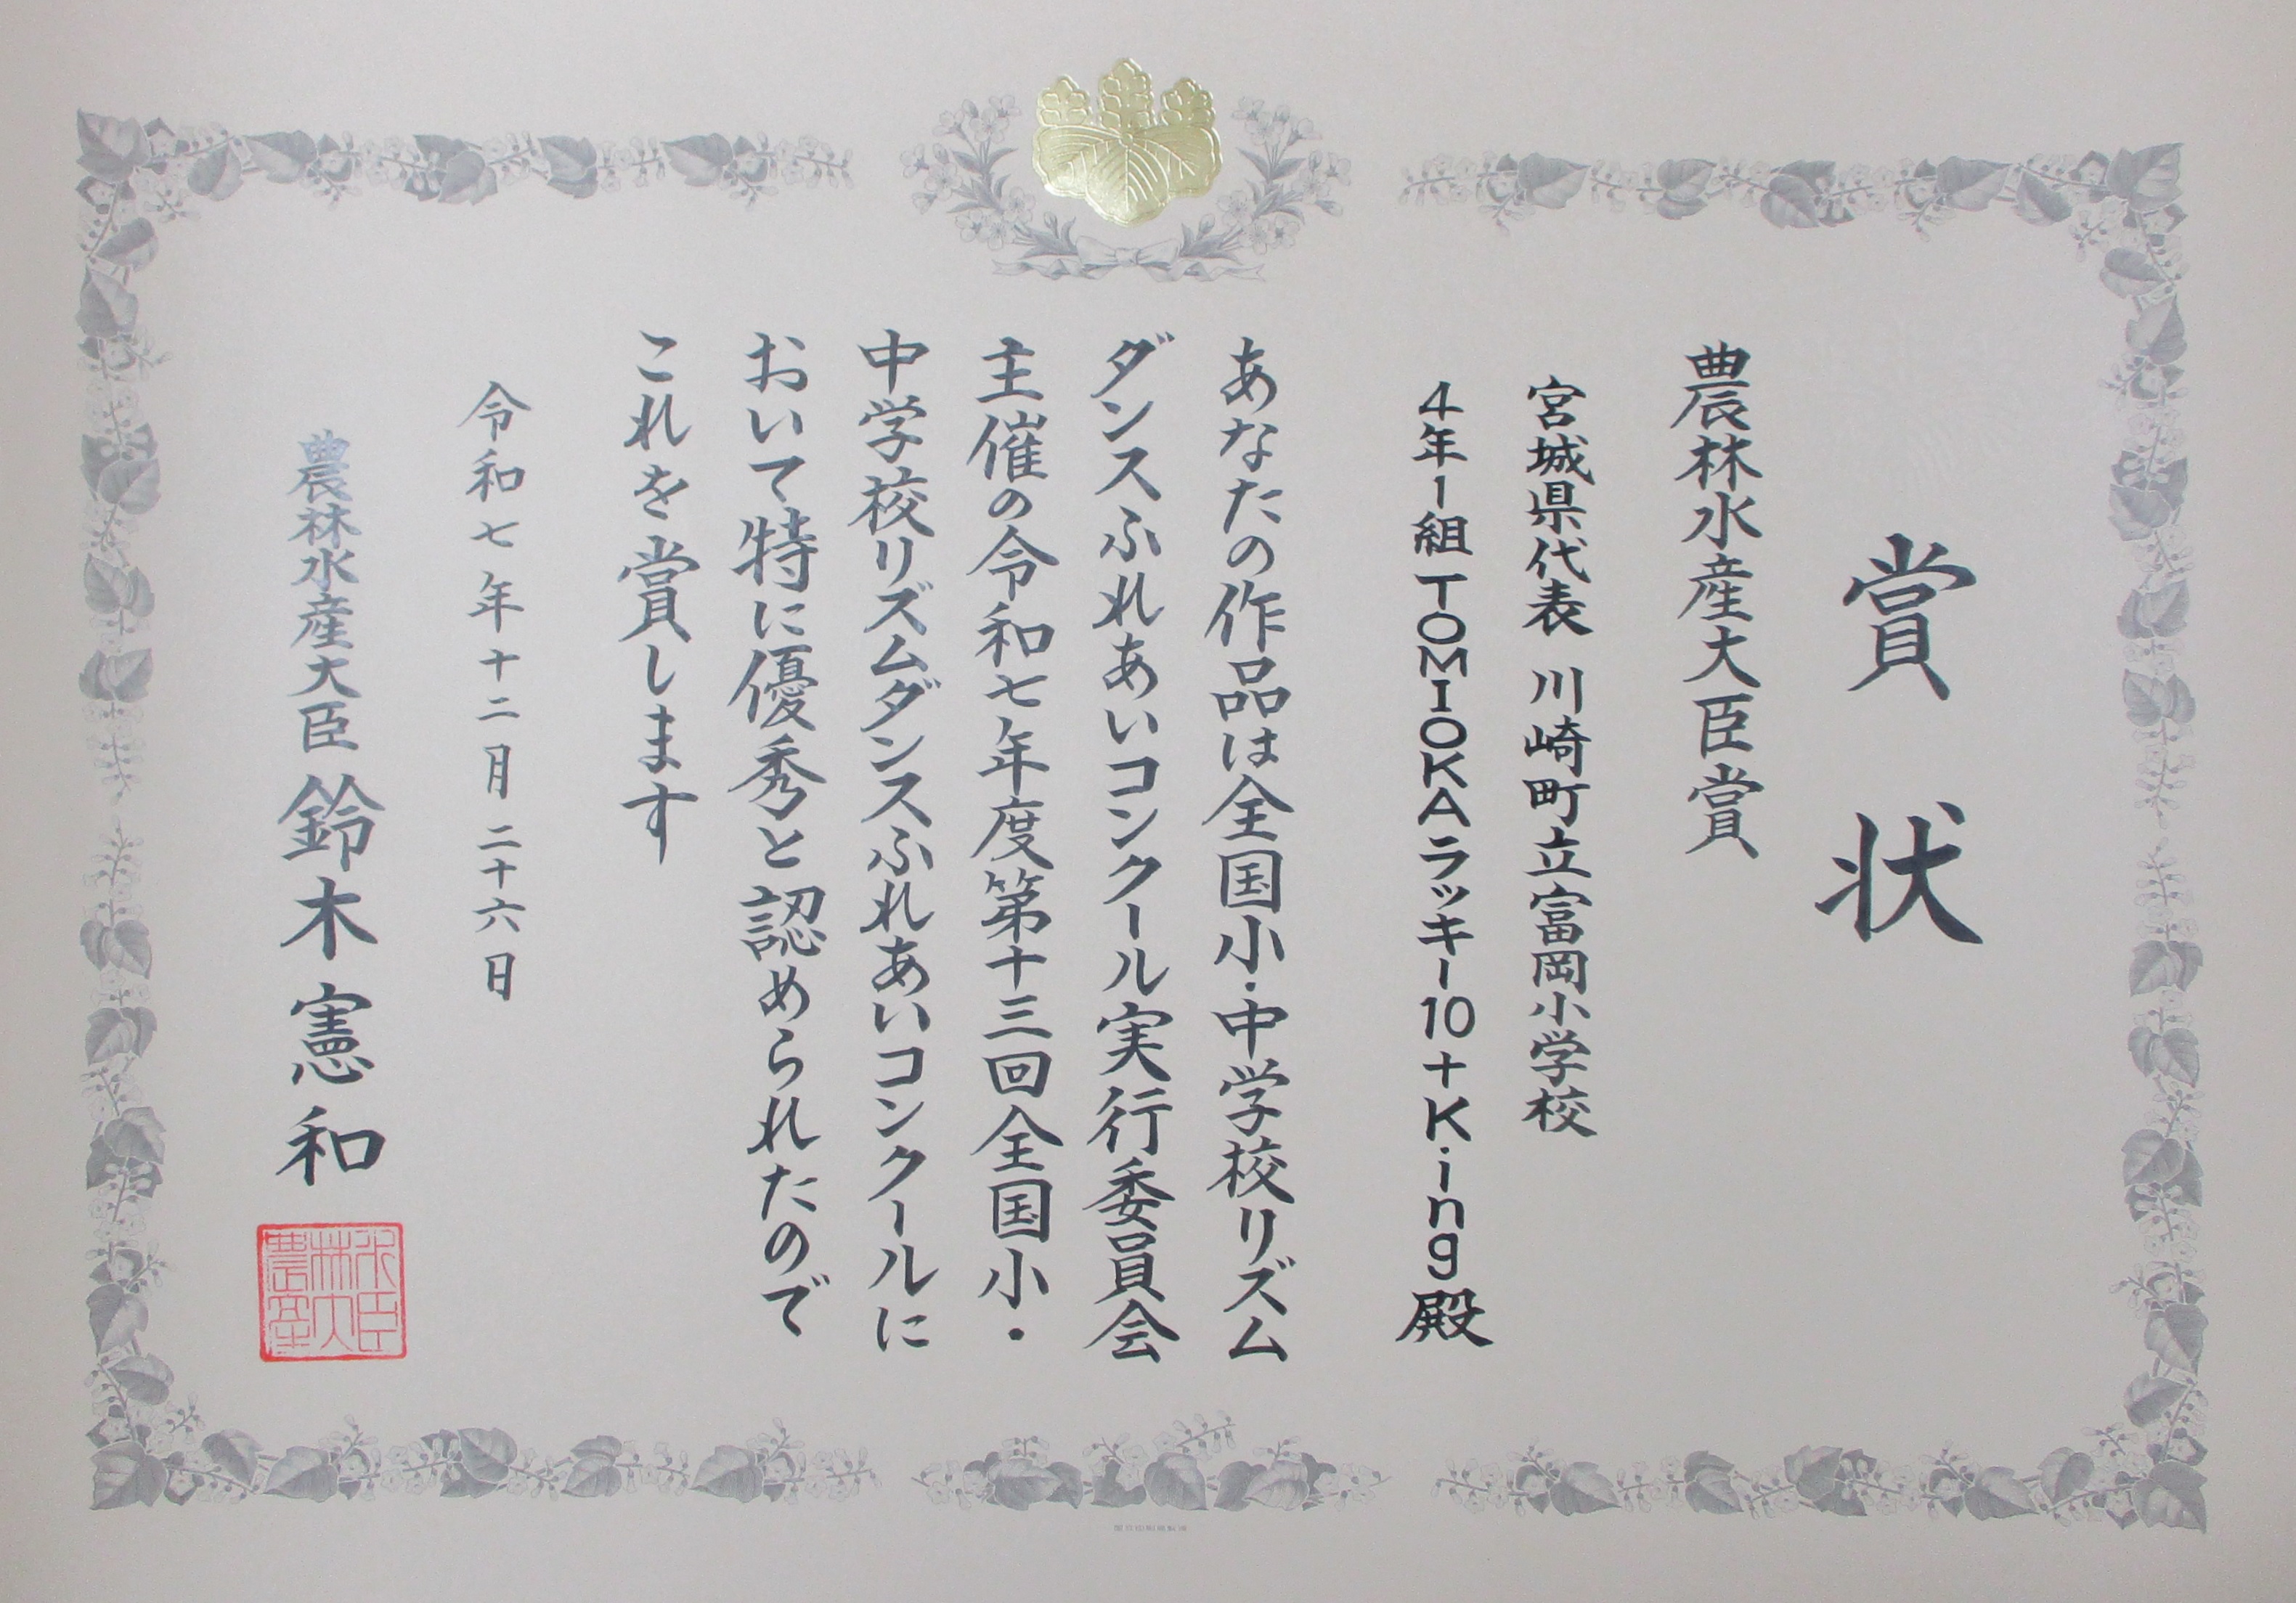 賞状
農林水産大臣賞
宮城県代表 川崎町立富岡小学校
4年1組 TOMIOKAラッキー10+King殿
あなたの作品は全国小・中学校リズム
ダンスふれあいコンクール実行委員会
主催の令和七年度第十三回全国小・
中学校リズムダンスふれあいコンクールに
おいて特に優秀と認められたので
これを賞します
令和七年十二月二十六日
農林水産大臣 鈴木憲和